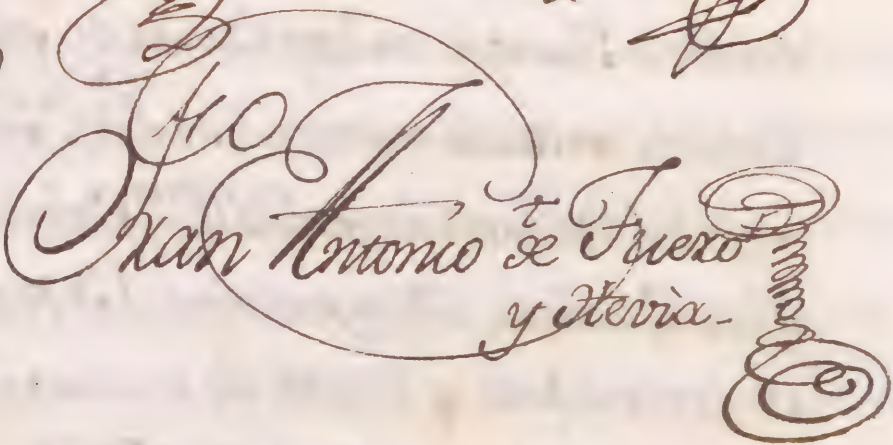 Juan Antonio de Tuero
y Hevia